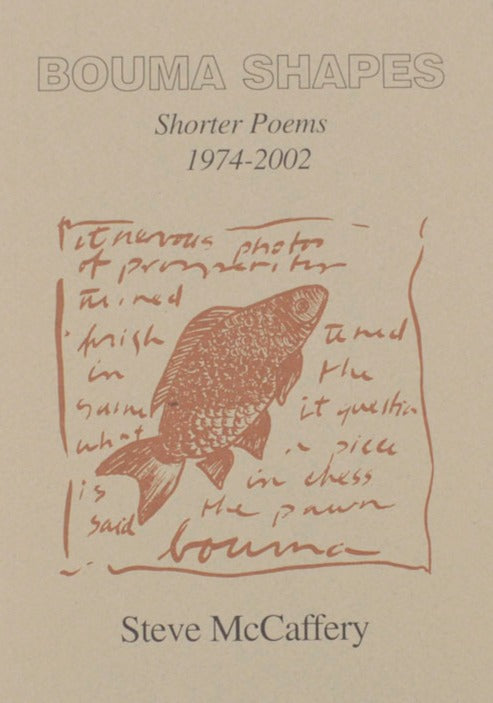 BOUMA SHAPES
Shorter Poems
1974-2002
it nervous photos
of prosperity
in
what
is
said
tuned
the
it question
a piece
in chess
the pawn
bouma
Steve McCaffery